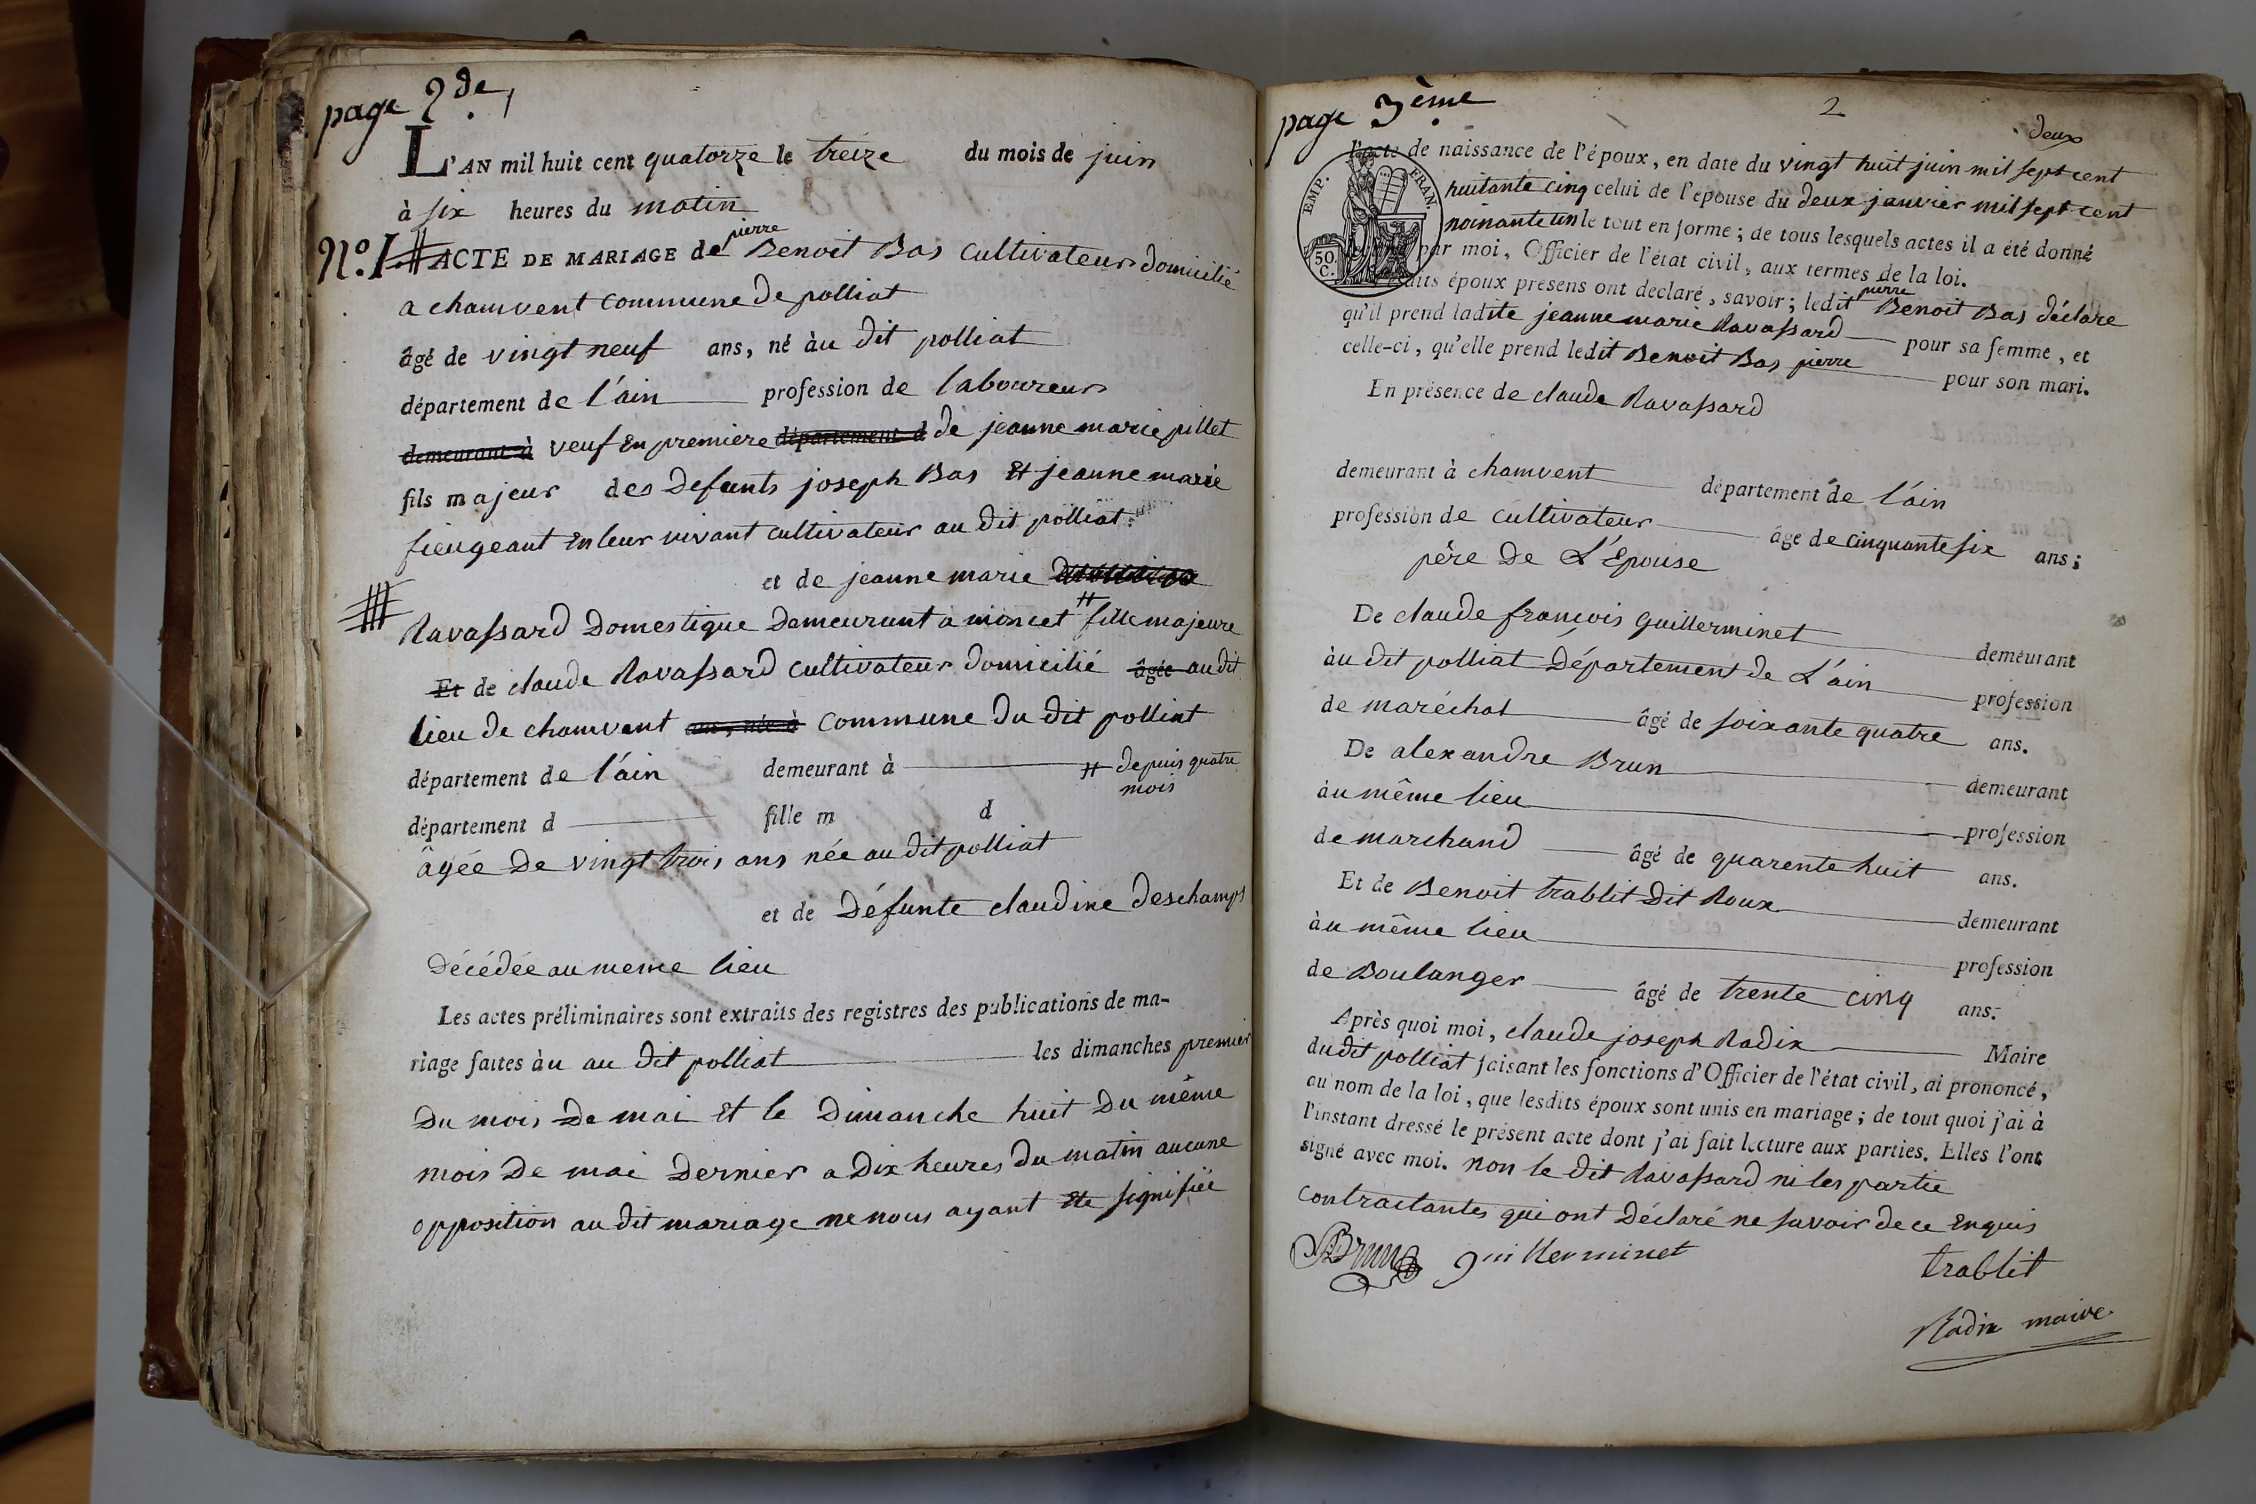 page 2de,
L'AN mil huit cent quatorze le treize du mois de juin
à six heures du matin
pierre
N.º I. ACTE DE MARIAGE de Benoit Bas cultivateur domicilié
a chamvent commune de polliat
âgé de vingt neuf ans, né àu dit polliat
département de l'ain profession de laboureur
demeurant à veuf En premiere département d de jeanne marie pillet
fils majeur des defunts joseph Bas Et jeanne marie
fieugeant En leur vivant cultivateur au dit polliat
et de jeanne marie
Ravassard Domestique Demeurant a moncet # fille majeure
Et de claude Ravassard cultivateur domicilié âgée au dit
lieu de chamvent ans, née à commune du dit polliat
département de l'ain demeurant à # depuis quatre
mois
département d fille m d
âgée De vingt trois ans née au dit polliat
et de Défunte claudine deschamps
Décédée au meme lieu
Les actes préliminaires sont extraits des registres des publications de ma-
riage faites àu au dit polliat les dimanches premier
Du mois De mai Et le Dimanche huit Du même
mois De mai Dernier a Dix heures du matin aucune
opposition au dit mariage ne nous ayant Ete signifiée
page 3ème
2
deux
l'acte de naissance de l'époux, en date du vingt huit juin mil sept cent
huitante cinq celui de l'épouse du deux janvier mil sept cent
noinante un le tout en forme; de tous lesquels actes il a été donné
par moi, Officier de l'état civil, aux termes de la loi.
EMP. FRAN.
50.
C.
époux présens ont declaré, savoir; ledit pierre Benoit Bas déclare
qu'il prend ladite jeanne marie Ravassard pour sa femme, et
celle-ci, qu'elle prend ledit Benoit Bas pierre pour son mari.
En présence de claude Ravassard
demeurant à chamvent département de l'ain
profession de cultivateur âgé de cinquante six ans;
père De L'Epouse
De claude francois guillerminet demeurant
àu dit polliat Département de L'ain profession
de maréchal âgé de soixante quatre ans.
De alexandre Brun demeurant
àu même lieu profession
de marchand âgé de quarente huit ans.
Et de Benoit trablit Dit Roux demeurant
àu même lieu profession
de Boulanger âgé de trente cinq ans.
Après quoi moi, claude joseph Radix Maire
du dit polliat faisant les fonctions d'Officier de l'état civil, ai prononcé,
au nom de la loi, que lesdits époux sont unis en mariage; de tout quoi j'ai à
l'instant dressé le présent acte dont j'ai fait lecture aux parties. Elles l'ont
signé avec moi. non le dit Ravassard ni les partie
contractantes qui ont Déclaré ne savoir de ce Enquis
Brun guillerminet trablit
Radix maire